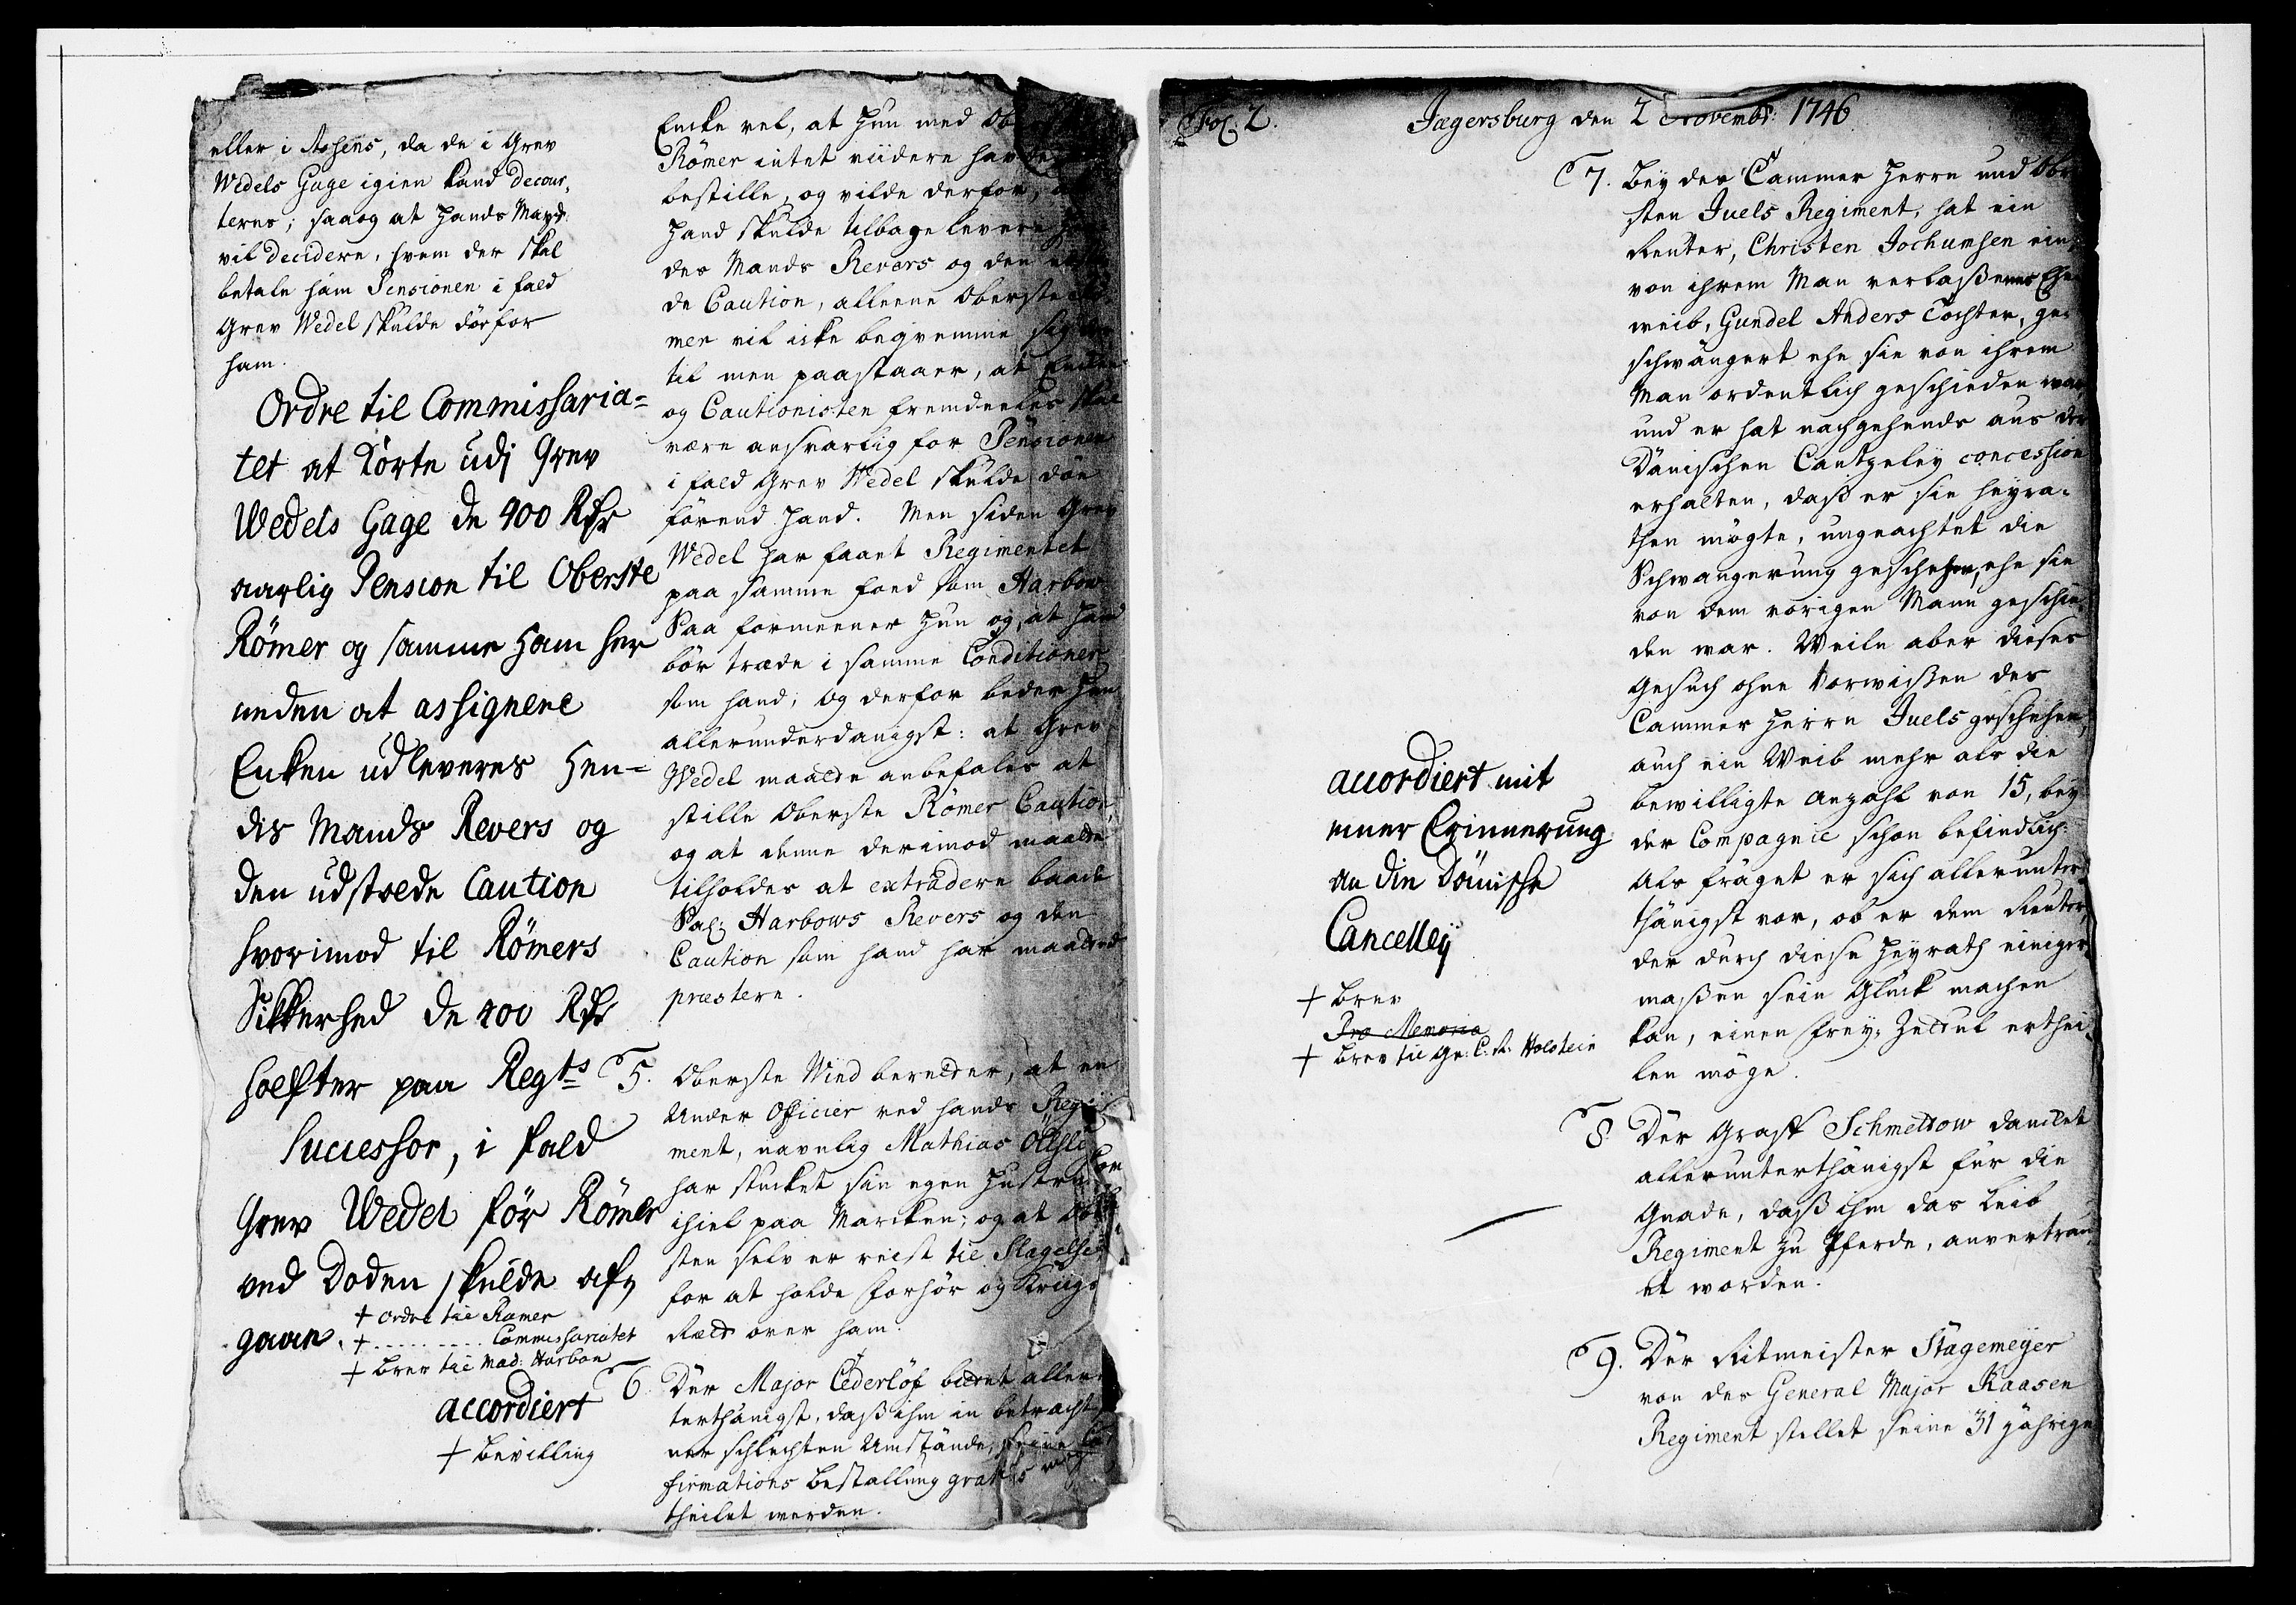 eller i Assens, da de i Grev
Wedels Gage igien kand decour,
teres; saa og at Hands Mayt:
vil decidere, hvem der skal
betale ham Pensionen i fald
Grev Wedel skulde döe for
ham.
Ordre til Commissaria=
tet at körte udj Grev
Wedels Gage de 400 Rdr
aarlig Pension til Oberste
Römer og samme ham her
neden at assignere
Enken udleveres Hen=
dis Mands Revers og
den udstæde Caution
hvorimod til Römers
Sikkerhed de 400 Rdr
hæfter paa Regts
Successor, i fald
Grev Wedel för Römer
ved Døden skulde afg
gaae.
+ ordre til Römer
+ ......... Commissariatet
+ brev til Mad: Harboe
accordiert
+ bevilling
Encke vel, at Hun med Ob
Römer intet viidere hav
bestille, og vilde derfor,
Hand skulde tilbage levere
des Mands Revers og den
de Caution, alleene Oberste
mer vil icke beqvemme sig
til men paastaaer, at Encken
og Cautionisten fremdeeles skal
være ansvarlig for Pensionen
i fald Grev Wedel skulde döe
förend Hand. Men siden Grev
Wedel har faaet Regimentet
paa samme foed som Harboe
Saa formeener Hun og, at Hand
bör træde i samme Conditioner
som hand; og derfor beder Hun
allerunderdanigst: at Grev
Wedel maatte anbefales at
stille Oberste Römer Caution,
og at denne derimod maatte
tilholdes at extradere baade
Sal: Harbows Revers og den
Caution som hand har maattet
præstere.
5. Oberste Wind beretter, at en
Under Officier ved hands Regi
ment, navnlig Mathias
har stucket sin egen Hustru
ihiel paa Marcken; og at Ober
sten selv er reist til Slagelse
for at holde forhör og Kriigs
Rætt over ham.
6. Der Major Cederlöf bittet allerun
terthänigst, daß ihm in betracht
ner schlechten Umstände, seine Con
firmations Bestallung gratis
theilet werden.
Fol. 2. Jægersburg den 2 Novembr: 1746
7. Bey des Cammer Herrn und Obri
sten Juels Regiment, hat ein
Reuter, Christen Jochumsen ein
von ihrem Man verlaßenes Ehe
weib, Gundel Anders Tochter, ge
schwängert ehe sie von ihrem
Man ordentlich geschieden war
und er hat nachgehends aus der
Dänischen Cantzeley concession
erhalten, daß er sie heyra-
then mögte, ungeachtet die
Schwangerung geschehen, ehe sie
von dem vorigen Mann geschie
den war. Weile aber dieses
Gesuch ohne Vorwißen des
Cammer Herrn Juels geschehen,
auch ein Weib mehr als die
bewilligte Anzahl von 15, bey
der Compagnie schon befindlich:
Als fraget er sich allerunter
thänigst vor, ob er dem Reuter
der durch diese Heyrath einiger
maßen sein Glück machen
kan, einen Frey-Zettul erthei
len möge.
accordiert mit
einer Erinnerung
an die Dänische
Cancelley
+ brev
Pro Memoria
+ brev til Gr: C: R: Holstein
8. Der Graff Schmettow dancket
allerunterthänigst für die
Gnade, daß ihm das Leib
Regiment zu Pferde, anvertrau
et worden.
9. Der Ritmeister Stagemeyer
von des General Major Kaasen
Regiment stellet seine 31 jährige